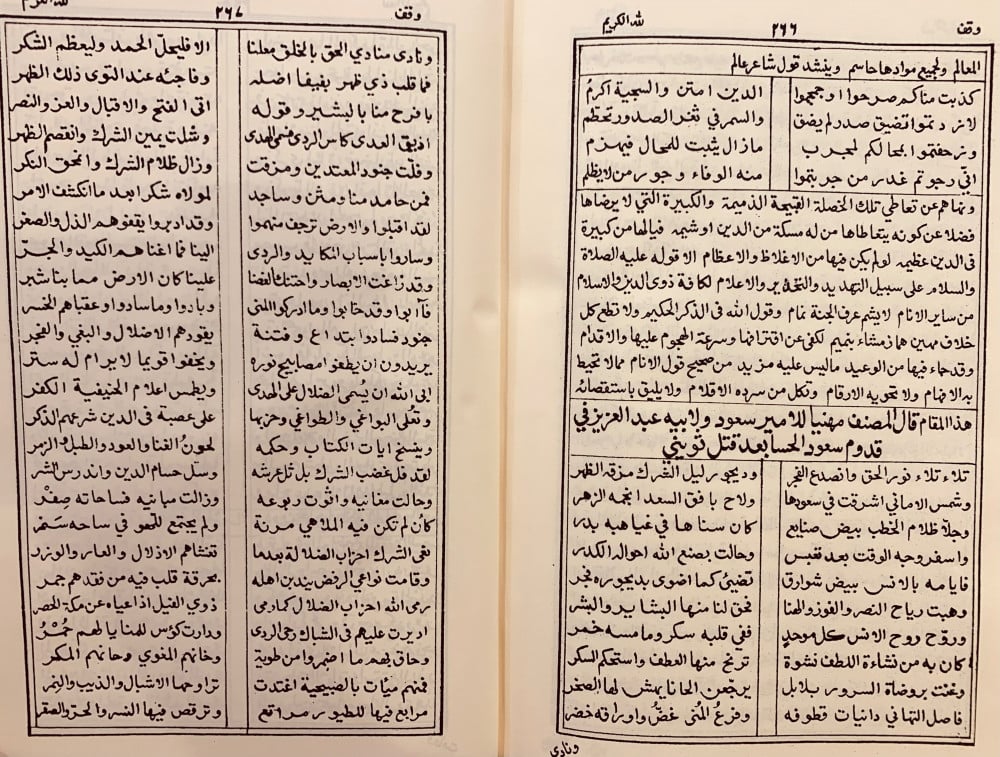 وقف
٢٦٦
لله الكريم
المعالم ولجميع موادها حاسم وينشد قول شاعر عالم
كذبت مناكم صرحوا او جمجموا الدين امتن والسجية اكرمُ
لا تردتموا تضيق صدر لم يضق والسمر في ثغر الصدور تحطم
وزحفتموا بمحالكم لمجرب مازال يثبت للمحال فيهزم
اني رجوتم غدر من جربتموا منه الوفاء وجور من لا يظلم
ونهاهم عن تعاطي تلك الخصلة القبيحة الذميمة والكبيرة التي لا يرضاها
فضلا عن كونه يتعاطاها من له مسكة من الدين او شيمه فيالها من كبيرة
في الدين عظيمه لو لم يكن فيها من الاغلاظ والاعظام الا قوله عليه الصلاة
والسلام على سبيل التهديد والتحذير والاعلام لكافة ذوي الدين والاسلام
من ساير الانام لا يشم عرف الجنة نمام وقول الله في الذكر الحكيم ولا تطع كل
حلاف مهين هماز مشاء بنميم لكفى عن اقترافها وسرعة الهجوم عليها والاقدام
وقد جاء فيها من الوعيد ماليس عليه مزيد من صحيح قول الانام مما لا تحيط
به الافهام ولا تحويه الارقام وتكل من سرده الاقلام ولا يليق باستقصائه
هذا المقام قال المصنف مهنيا للامير سعود ولابيه عبد العزيز في
قدوم سعود الحسا بعد قتل ثويني
تلاء تلاء نور الحق وانصدع الفجر وديجور ليل الشرك مزقه الظهر
وشمس الاماني اشرقت في سعودها ولاح بافق السعد انجمه الزهر
وجلا ظلام الخطب بيض صنايع كان سناها في غياهبه بدر
واسفر وجه الوقت بعد تعبس وحالت بصنع الله احواله الكدر
فايامه بالانس بيض شوارق تضيئ كما اضوى بديجوره فجر
وهبت رياح النصر والفوز والهنا فحق لنا منها البشاير والبشر
وروّح روح الانس كل موحدٍ ففي قلبه سكر وما مسه خمر
كان به من نشاءة اللطف نشوة ترنح منها العطف واستحكم السكر
وغنت بروضاة السرور بلابل يرجّعن الحانا يهش لها الصخر
فاصل التهاني دانيات قطوفه وفرعُ المنى غضٌ واوراقه خضر
ونادى
وقف
٢٦٧
لله الكريم
ونادى منادي الحق بالخلق معلنا الا فليحلّ الحمد وليعظم الشكر
فما قلب ذي ظهر بفيفا اضله وفاجئه عند التوى ذلك الظهر
بافرح منا بالبشير وقوله اتى الفتح والاقبال والعز والنصر
اذيق العدى كاس الردى مسمى الهدى وشلت يمين الشرك وانقصم الظهر
وفلّت جنود المعتدين ومزقت وزال ظلام الشرك وانمحق النكر
فمن حامد منا ومثن وساجد لمولاه شكرا بعد ما انكشف الامر
لقد اقبلوا والارض ترجف منهموا وقد ادبروا يقفوهم الذل والصغر
وساروا باسباب المكايد والردى الينا فما اغناهم الكيد والمجر
وقد زاغت الابصار واحتنك الفضا علينا كان الارض مما بنا شبر
فآبوا وقد خابوا وما ادركوا المنى وبادوا وما سادوا وعقباهم الخسر
جنود فساد وابتداع وفتنة يقودهم الاضلال والبغي والفجر
يريدون ان يطفئوا مصابيح نوره ويخفوا قويما لا يرام له ستر
ابى الله ان يُسمى الضلال على الهدى ويطمس اعلام الحنيفية الكفر
وتعلى البواغي والطواغي وحزبها على عصبة في الدين شرعهم الذكر
وينسخ ايات الكتاب وحكمه لحونُ الغنا والعود والطبل والزمر
لقد فل غضب الشرك بل ثل عرشه وسل حسام الدين واندرس الشر
وحالت مغانيه واقوت ربوعه وزالت مبانيه فساحاته صِفْر
كان لم تكن فيه الملاهي مرنة ولم يجتمع للهو في ساحه سَمر
فنى الشرك احزاب الضلالة بعدما تغشاهم الاذلال والعار والوزر
وقامت نواعي الرفض يندبن اهله بحرقة قلب فيه من فقدهم جمر
رمى الله احزاب الضلال كما رمى ذوي الفيل اذ اعياه عن مكة الحصر
اديرت عليهم في الشباك رحى الردى ودارت كؤس للمنايا لهم حُمْرُ
وحاق بهم ما اضمروا من طوية وخانهم المغوي وحانهم المكر
فمنهم مئات بالصبيحية اغتدت تراوحها الاشبال والذيب والنمر
مرابع فيها للطيور مراتع وترقص فيها النسر والحر والصقر